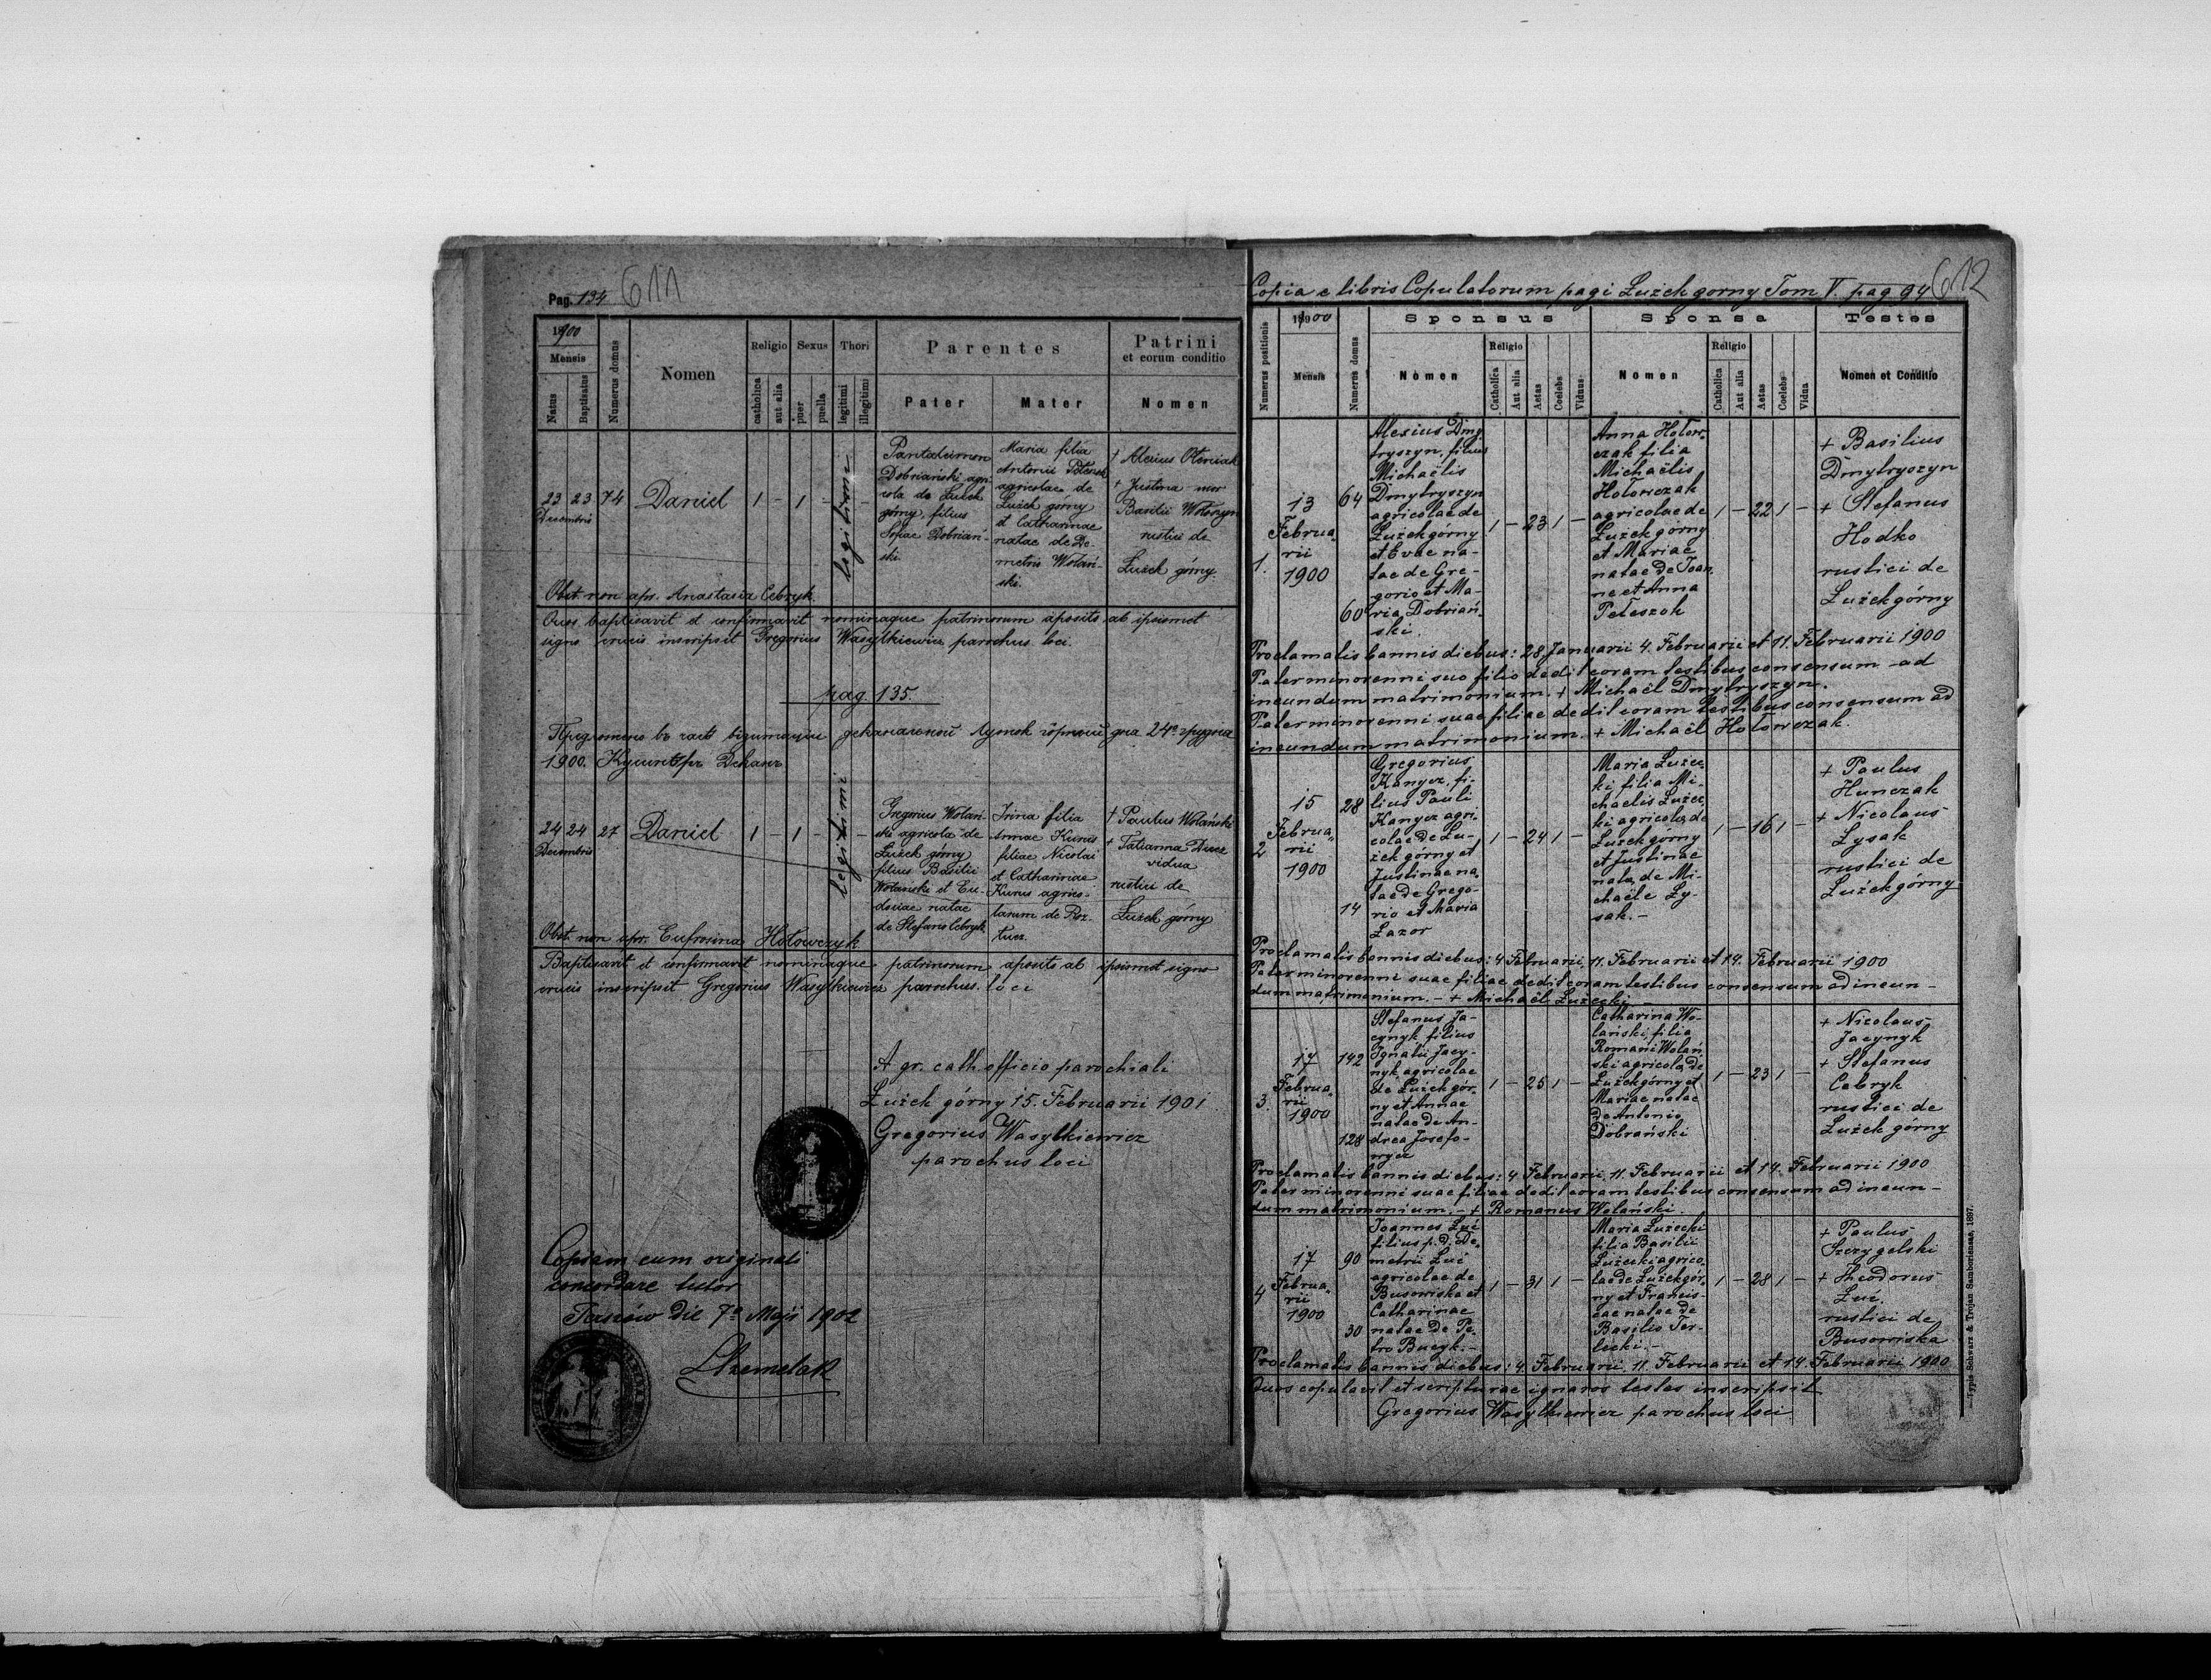 Pag. 134
611
1900
Mensis
Natus
Baptisatus
Numerus domus
Nomen
Religio
catholica
aut alia
Sexus
puer
puella
Thori
legitimi
illegitimi
Parentes
Pater
Mater
Patrini
et eorum conditio
Nomen
23 23
Decembris
74
Daniel
1 - 1 -
legitimi
Pantaleimon
Dobriański agri-
cola de Łużek
górny, filius
Sofiae Dobriań-
ski
Maria filia
Antonii
agricolae de
Łużek górny
et Catharinae
natae de De-
metrio Wolań-
ski
+ Alexius Oleniak
+ Justina uxor
Basilii Wołoszyn
rustici de
Łużek górny.
Obst. non apr. Anastasia Cebryk
Quos baptisavit et confirmavit nominaque patrinorum aposito ab ipsismet
signo crucis inscripsit Gregorius Wasylkiewicz, parochus loci.
pag. 135.
Предложено въ часѣ визитациi деканальной Лужок горный дня 24го грудня
1900. Декан
24 24
Decembris
27
Daniel
1 - 1 -
legitimi
Gregorius Wolań-
ski agricola de
Łużek górny
filius Basilii
Wolański et Eu-
dociae natae
de Stefano Cebryk
Irina filia
Annae Kunus
filiae Nicolai
et Catharinae
Kunus agrico-
larum de Roz-
łucz
+ Paulus Wolański
+ Tatianna Ducz
vidua
rustici de
Łużek górny
Obst. non apr. Eufrosina Hołowczyk
Baptisavit et confirmavit nominaque patrinorum aposito ab ipsismet signo
crucis inscripsit Gregorius Wasylkiewicz parochus loci
A gr. cath. officio parochiali
Łużek górny 15. Februarii 1901
Gregorius Wasylkiewicz
parochus loci
Copiam cum originali
concordare testor
Terszów die 7a Maji 1902
Copia e libris Copulatorum pagi Łużek gorny Tom V. pag 94
612
Numerus positionis
1900
Mensis
Numerus domus
Sponsus
Nomen
Religio
Catholica
Aut alia
Aetas
Coelebs
Viduus
Sponsa
Nomen
Religio
Catholica
Aut alia
Aetas
Coelebs
Vidua
Testes
Nomen et Conditio
1.
13
Februa-
rii
1900
64
60
Alexius Dmy-
tryszyn, filius
Michaëlis
Dmytryszyn
agricolae de
Łużek górny
et Evae na-
tae de Gre-
gorio et Ma-
ria Dobriań-
ski.
1 - 23 1 -
Anna Hołow-
czak filia
Michaëlis
Hołowczak
agricolae de
Łużek górny
et Mariae
natae de Joan-
ne et Anna
Peteszok
1 - 22 1 -
+ Basilius
Dmytryszyn
+ Stefanus
Hodko
rustici de
Łużek górny
Proclamatis bannis diebus: 28. Januarii 4. Februarii et 11. Februarii 1900
Pater minorenni suo filio dedit coram testibus consensum ad
ineundum matrimonium. + Michaël Dmytryszyn.
Pater minorenni suae filiae dedit coram testibus consensum ad
ineundum matrimonium. + Michaël Hołowczak.
2
15
Februa-
rii
1900
28
14
Gregorius
Kanycz, fi-
lius Pauli
Kanycz agri-
colae de Łu-
żek górny et
Justinae na-
tae de Grego-
rio et Maria
Lazor
1 - 24 1 -
Maria Łużec-
ki filia Mi-
chaelis Łużec-
ki agricolae de
Łużek górny
et Justinae
nata de Mi-
chaële Ły-
sak. -
1 - 16 1 -
+ Paulus
Hunczak
+ Nicolaus
Łysak
rustici de
Łużek górny
Proclamatis bannis diebus: 4 Februarii, 11. Februarii et 14. Februarii 1900
Pater minorenni suae filiae dedit coram testibus consensum ad ineun-
dum matrimonium. - + Michaël Łużecki -
3.
17
Februa-
rii
1900
142
128
Stefanus Ja-
cynyk filius
Ignatii Jacy-
nyk agricolae
de Łużek gór-
ny et Annae
natae de An-
drea Josefo-
wycz
1 - 25 1 -
Catharina Wo-
lański, filia
Romani Wolań-
ski agricolae de
Łużek górny et
Mariae natae
de Antonio
Dobrański
1 - 23 1 -
+ Nicolaus
Jacynyk
+ Stefanus
Cebryk
rustici de
Łużek górny
Proclamatis bannis diebus: 4 Februarii, 11. Februarii et 14. Februarii 1900
Pater minorenni suae filiae dedit coram testibus consensum ad ineun-
dum matrimonium. - + Romanus Wolański.
4
17
Februa-
rii
1900
90
30
Joannes Łuć
filius p. d. De-
metrii Łuć
agricolae de
Busowiska et
Catharinae
natae de Pe-
tro Bucyk. -
1 - 31 1 -
Maria Łużecki
filia Basilii
Łużecki agrico-
lae de Łużek gór-
ny et Francis-
cae natae de
Basilio Ter-
lecki. -
1 - 28 1 -
+ Paulus
Szczygelski
+ Theodorus
Łuć.
rustici de
Busowiska
Proclamatis bannis diebus: 4. Februarii, 11. Februarii et 14. Februarii 1900
Quos copulavit et scripturae ignaros testes inscripsit
Gregorius Wasylkiewicz parochus loci
Typis Schwarz & Trojan Samboriensae, 1897.